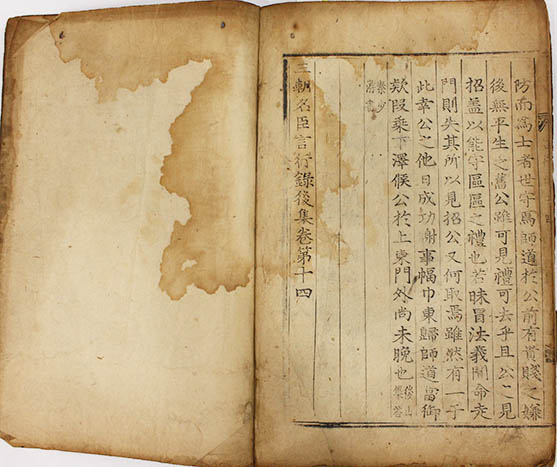 防而爲士者世守焉師道於公前有貴賤之嫌
後無平生之舊公雖可見禮可去乎且公之見
招盖以能守區區之禮也若昧冒法義聞命走
門則失其所以見招公又何取焉雖然有一于
此幸公之他日成功謝事幅巾東歸師道當御
欵段乘下澤候公於上東門外尚未晚也後山集答
秦少游書
三朝名臣言行錄後集卷第十四